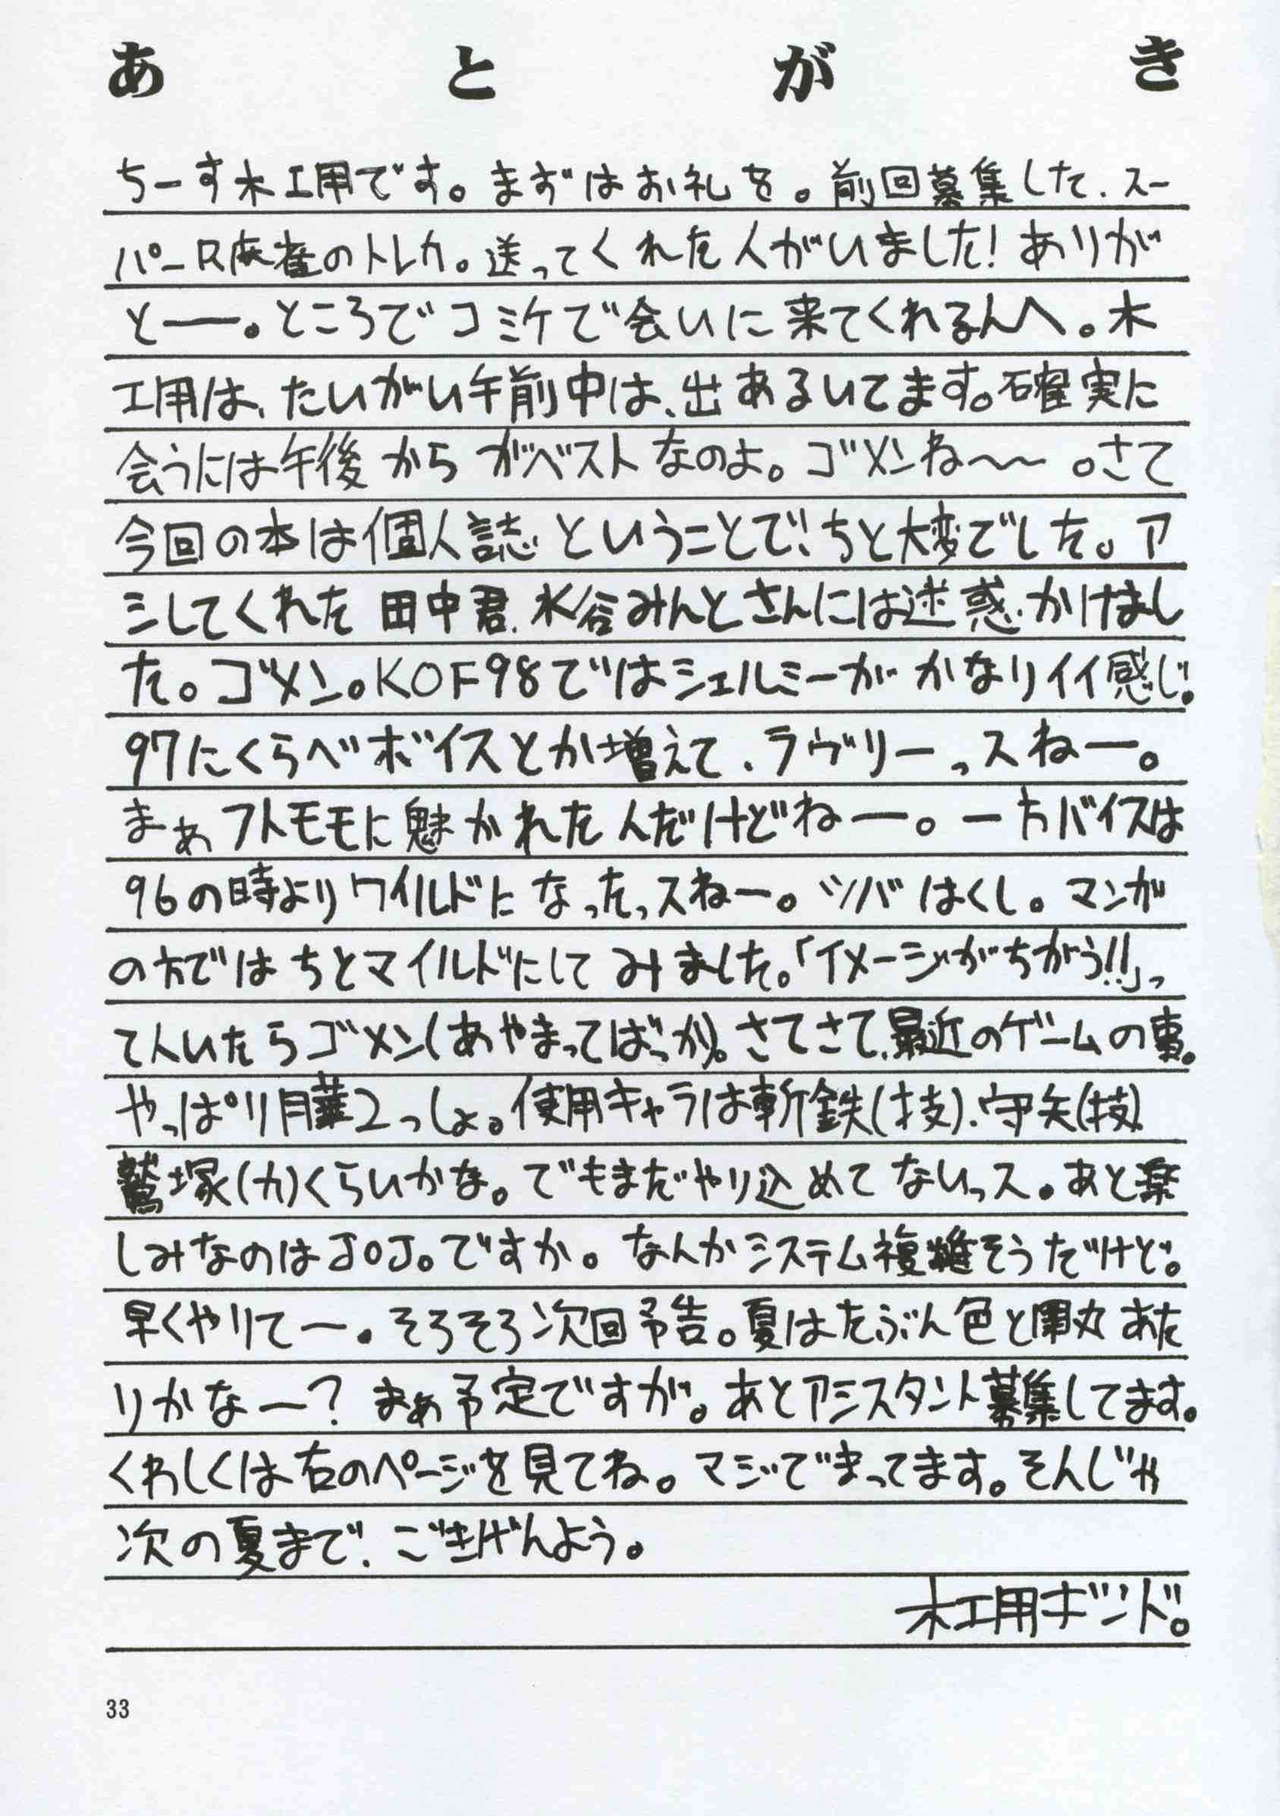 あとがき
ちーす木工用です。まずはお礼を。前回募集した、スー
パーR麻雀のトレカ。送ってくれた人がいました！ありが
とー。ところでコミケで会いに来てくれるんへ。木
工用は、たいがい午前中は、出あるいてます。確実に
会うには午後からがベストなのよ。ゴメンね〜〜。さて
今回の本は個人誌ということで、ちと大変でした。ア
シしてくれた田中君、水谷みんとさんには迷惑かけまし
た。ゴメン。KOF98ではシェルミーがかなりイイ感じ。
97にくらべボイスとか増えて、ラヴリーっスねー。
まぁフトモモに魅かれた人だけどねー。一方バイスは
96の時よりワイルドになったっスねー。ツバはくし。マンガ
の方ではちとマイルドにしてみました。「イメージがちがう!!」っ
て人いたらゴメン(あやまってばっか)。さてさて、最近のゲームの事。
やっぱり月華2っしょ。使用キャラは斬鉄(技)、守矢(技)
鷲塚(力)くらいかな。でもまだやり込めてないっス。あと楽
しみなのはJOJO。ですか。なんかシステム複雑そうだけど。
早くやりてー。そろそろ次回予告。夏はたぶん色と蘭丸あた
りかなー？まぁ予定ですが。あとアシスタント募集してます。
くわしくは右のページを見てね。マジでまってます。そんじゃ
次の夏まで、ごきげんよう。
木工用ボンド。
33